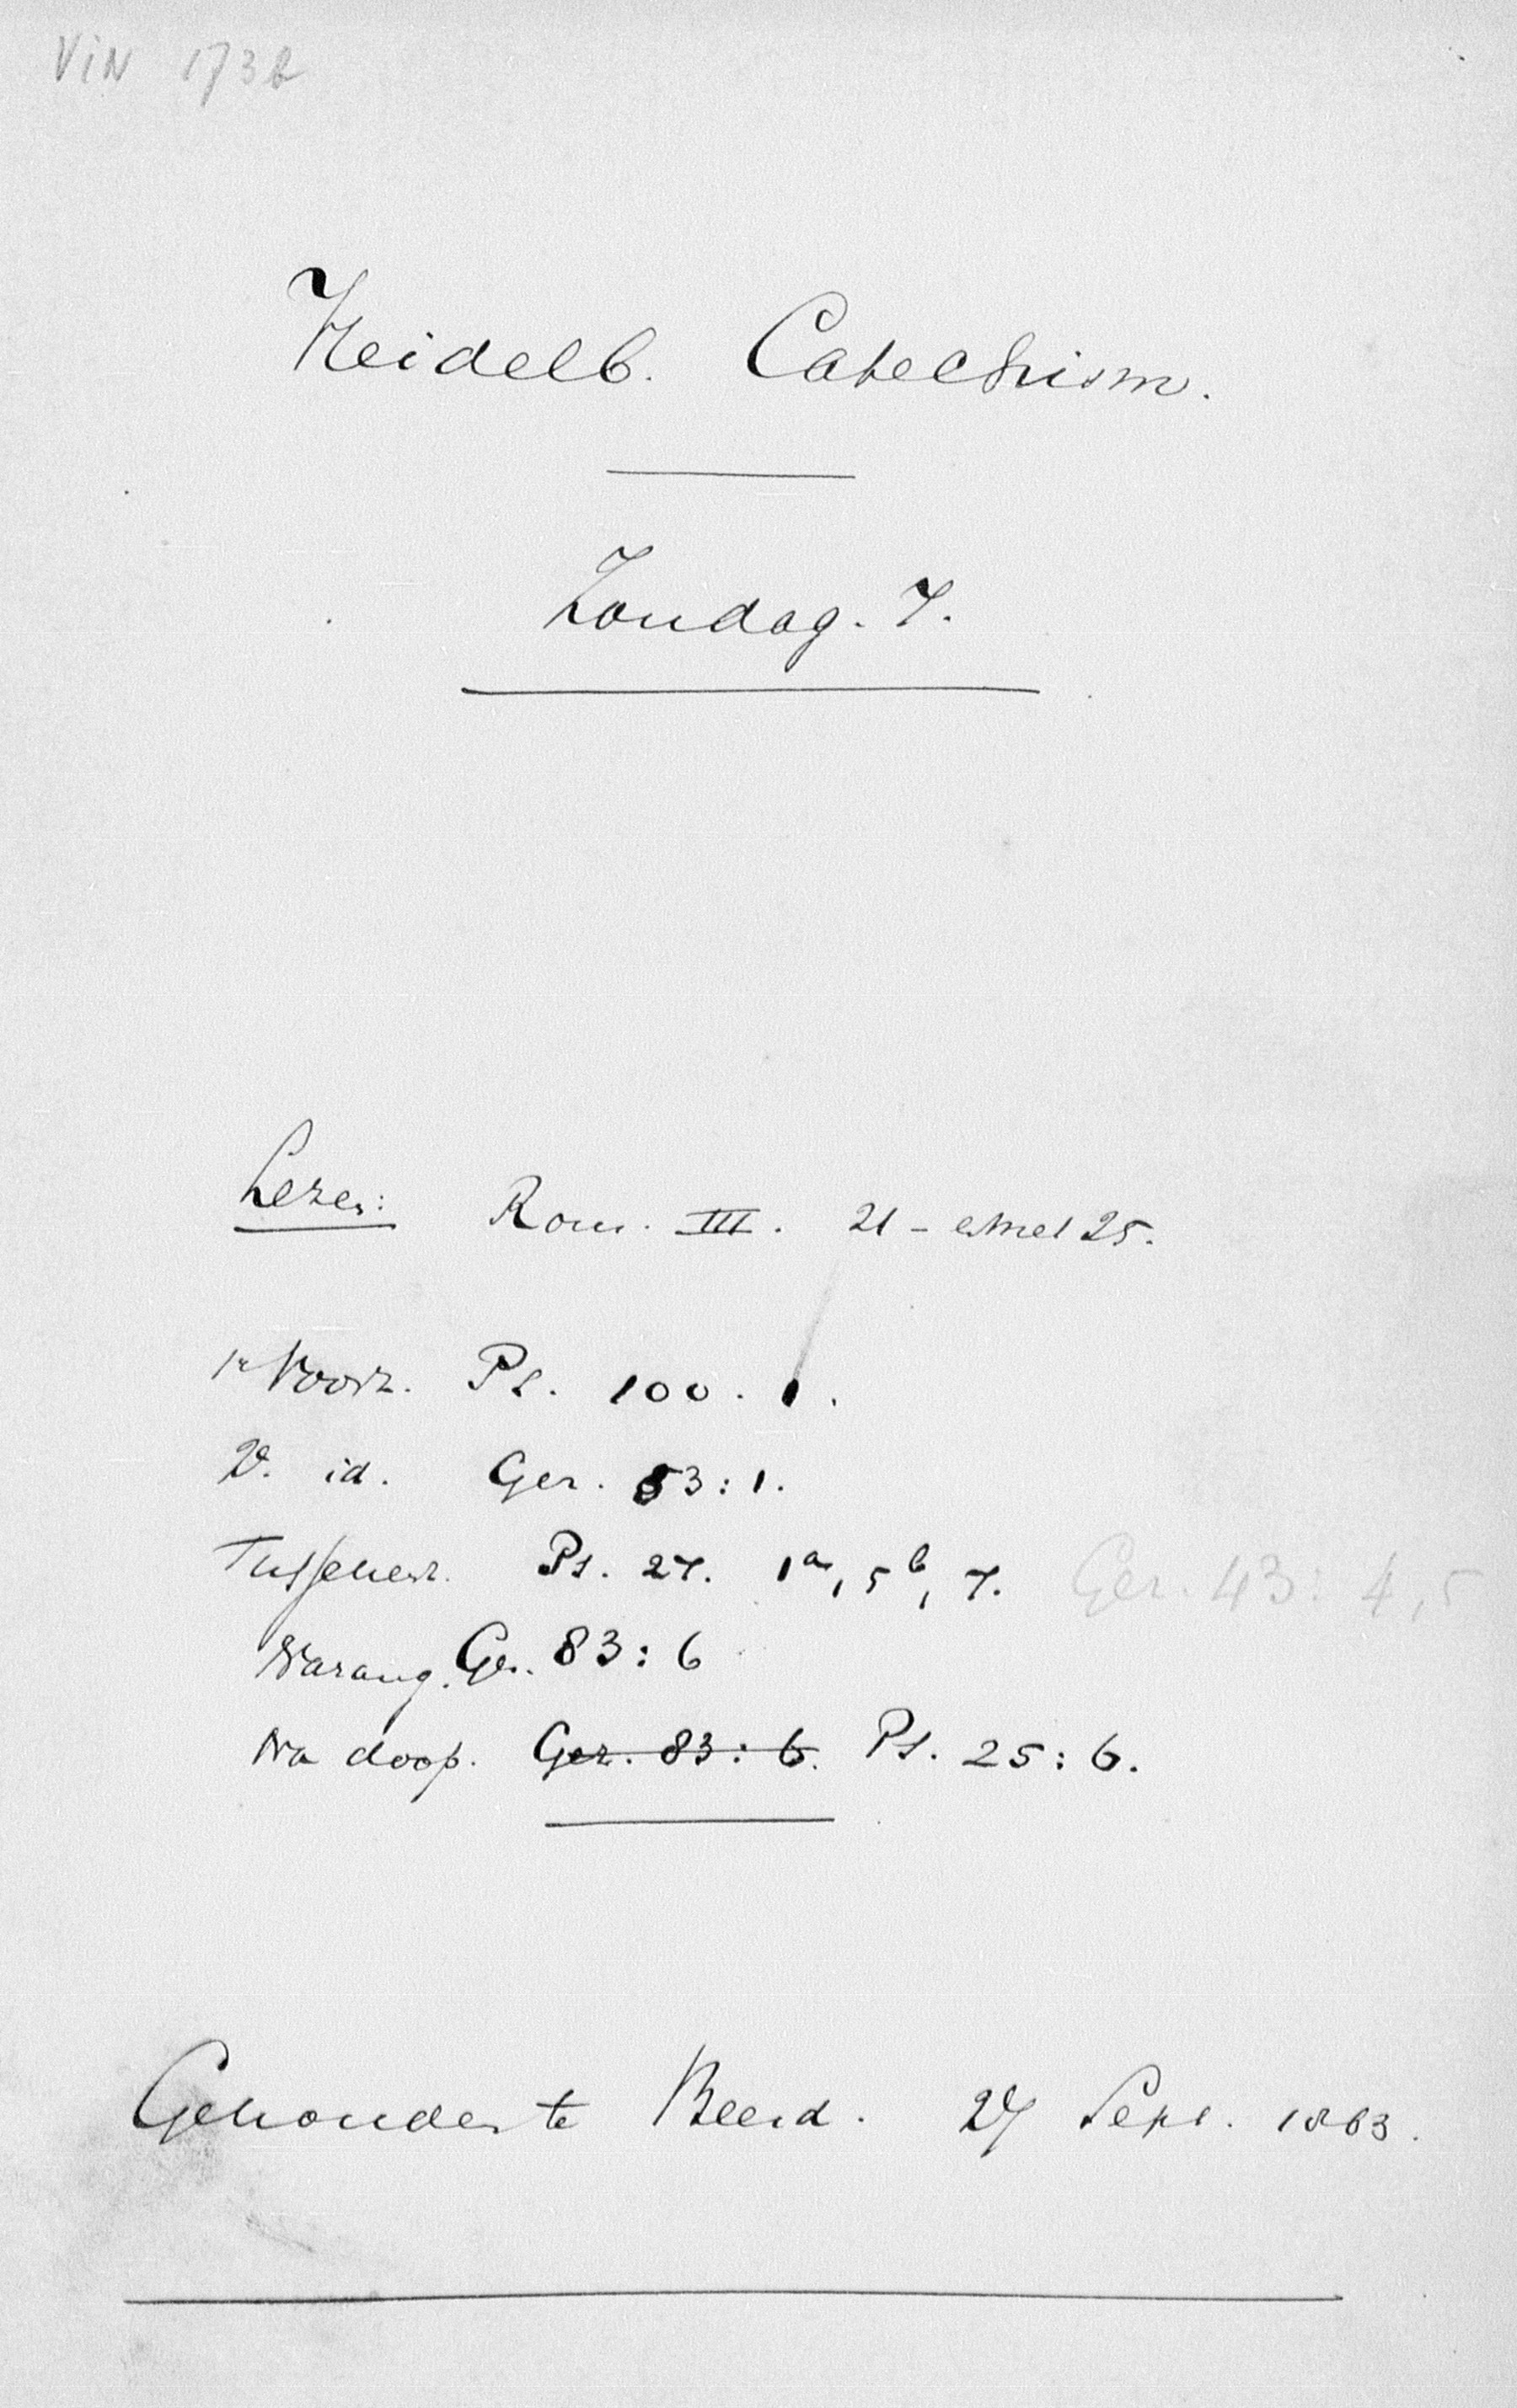 VIN 173b
Heidelb. Catechism.
Zondag. 7.
Lezen: Rom. III. 21 - 25.
1e Voorz. Ps. 100. 1.
2e. id. Gez. 53:1.
Tusschenz. Ps. 27. 1a, 5b, 7. Gez. 43: 4,5
Nazang. Gez. 83:6
Na doop. Gez. 83:6. Ps. 25:6.
Gehouden te Beesd. 27 Sept. 1863.